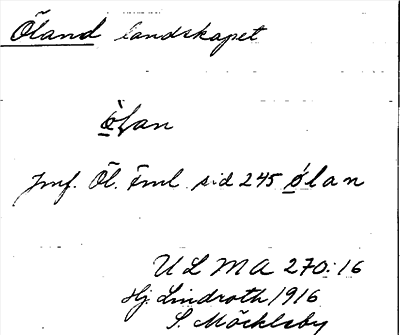 Öland landskapet
ò̲lan
Jmf. Öl. Fml. sid 245 ó̲lan
ULMA 270:16
Hj. Lindroth 1916
S. Möckleby